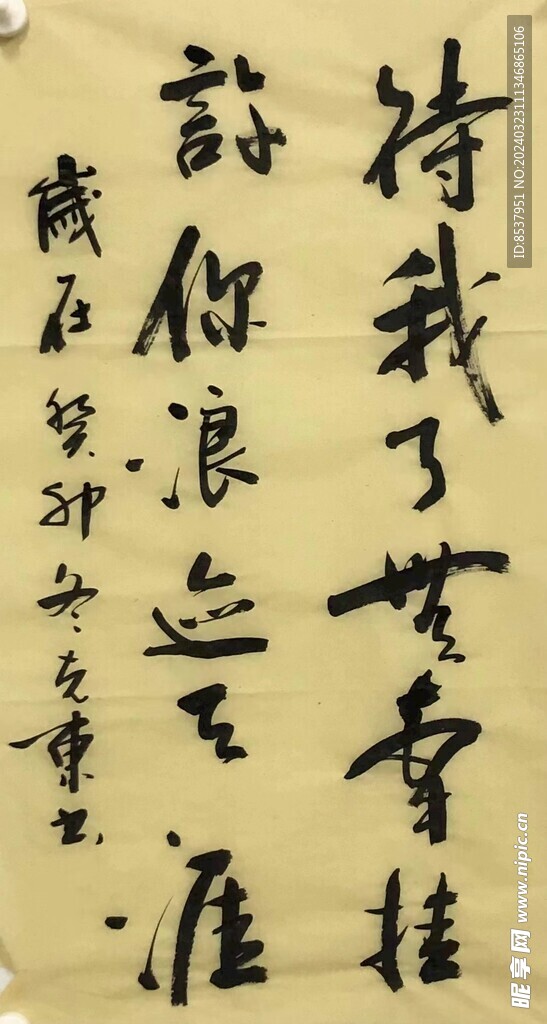 待我了無牽挂
許你浪迹天涯
歲在癸卯冬克東书
ID:8537951 NO:20240323111346865106
昵享网 www.nipic.cn